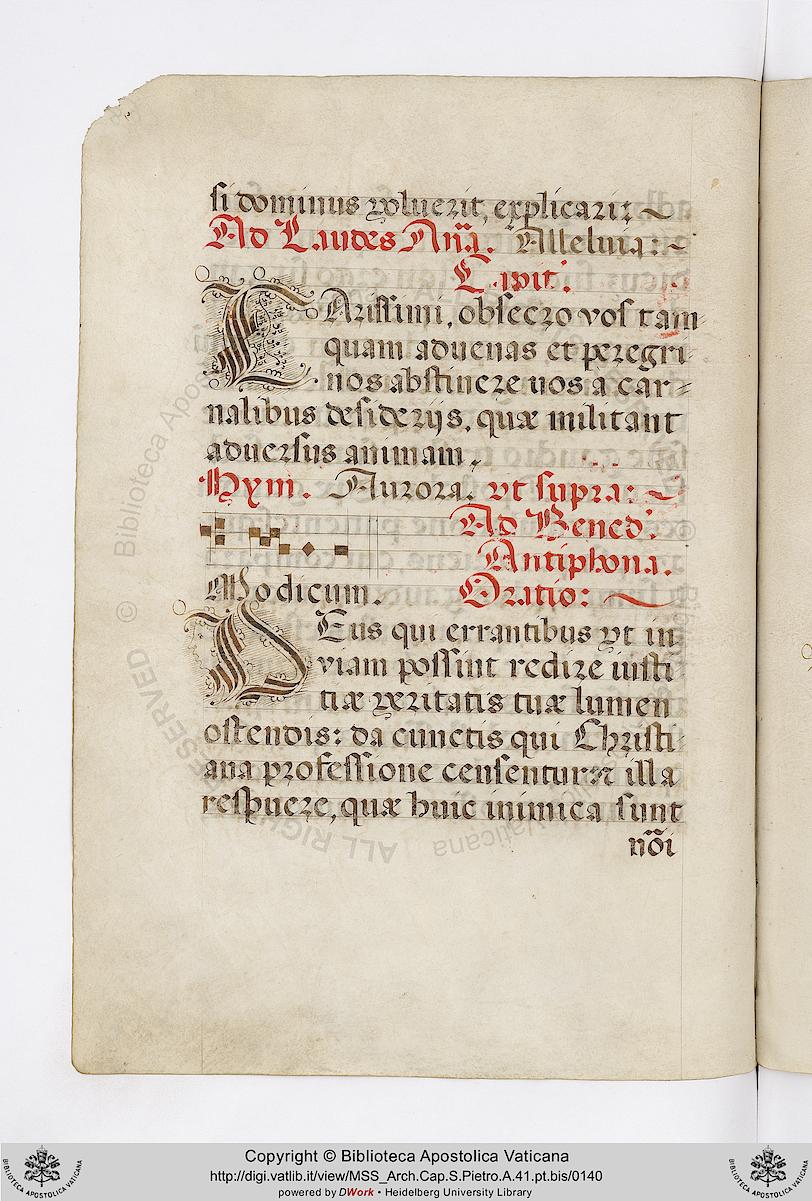 si dominus voluerit, explicari:
Ad Laudes Añã. Alleluia:
Capit.
CArissimi, obsecro vos tam
quam aduenas et peregri
nos abstinere uos a car
nalibus desiderijs, quæ militant
aduersus animam,
Hym. Aurora. vt supra:
Ad Bened.
Antiphona.
Modicum. Oratio:
DEus qui errantibus vt in
viam possint redire iusti
tiæ veritatis tuæ lumen
ostendis: da cunctis qui Christi
ana professione censentur et illa
respuere, quæ huic inimica sunt
nõi
Copyright © Biblioteca Apostolica Vaticana
http://digi.vatlib.it/view/MSS_Arch.Cap.S.Pietro.A.41.pt.bis/0140
powered by DWork • Heidelberg University Library
© Biblioteca Apostolica Vaticana
ALL RIGHTS RESERVED
BIBLIOTECA APOSTOLICA VATICANA
BIBLIOTECA APOSTOLICA VATICANA